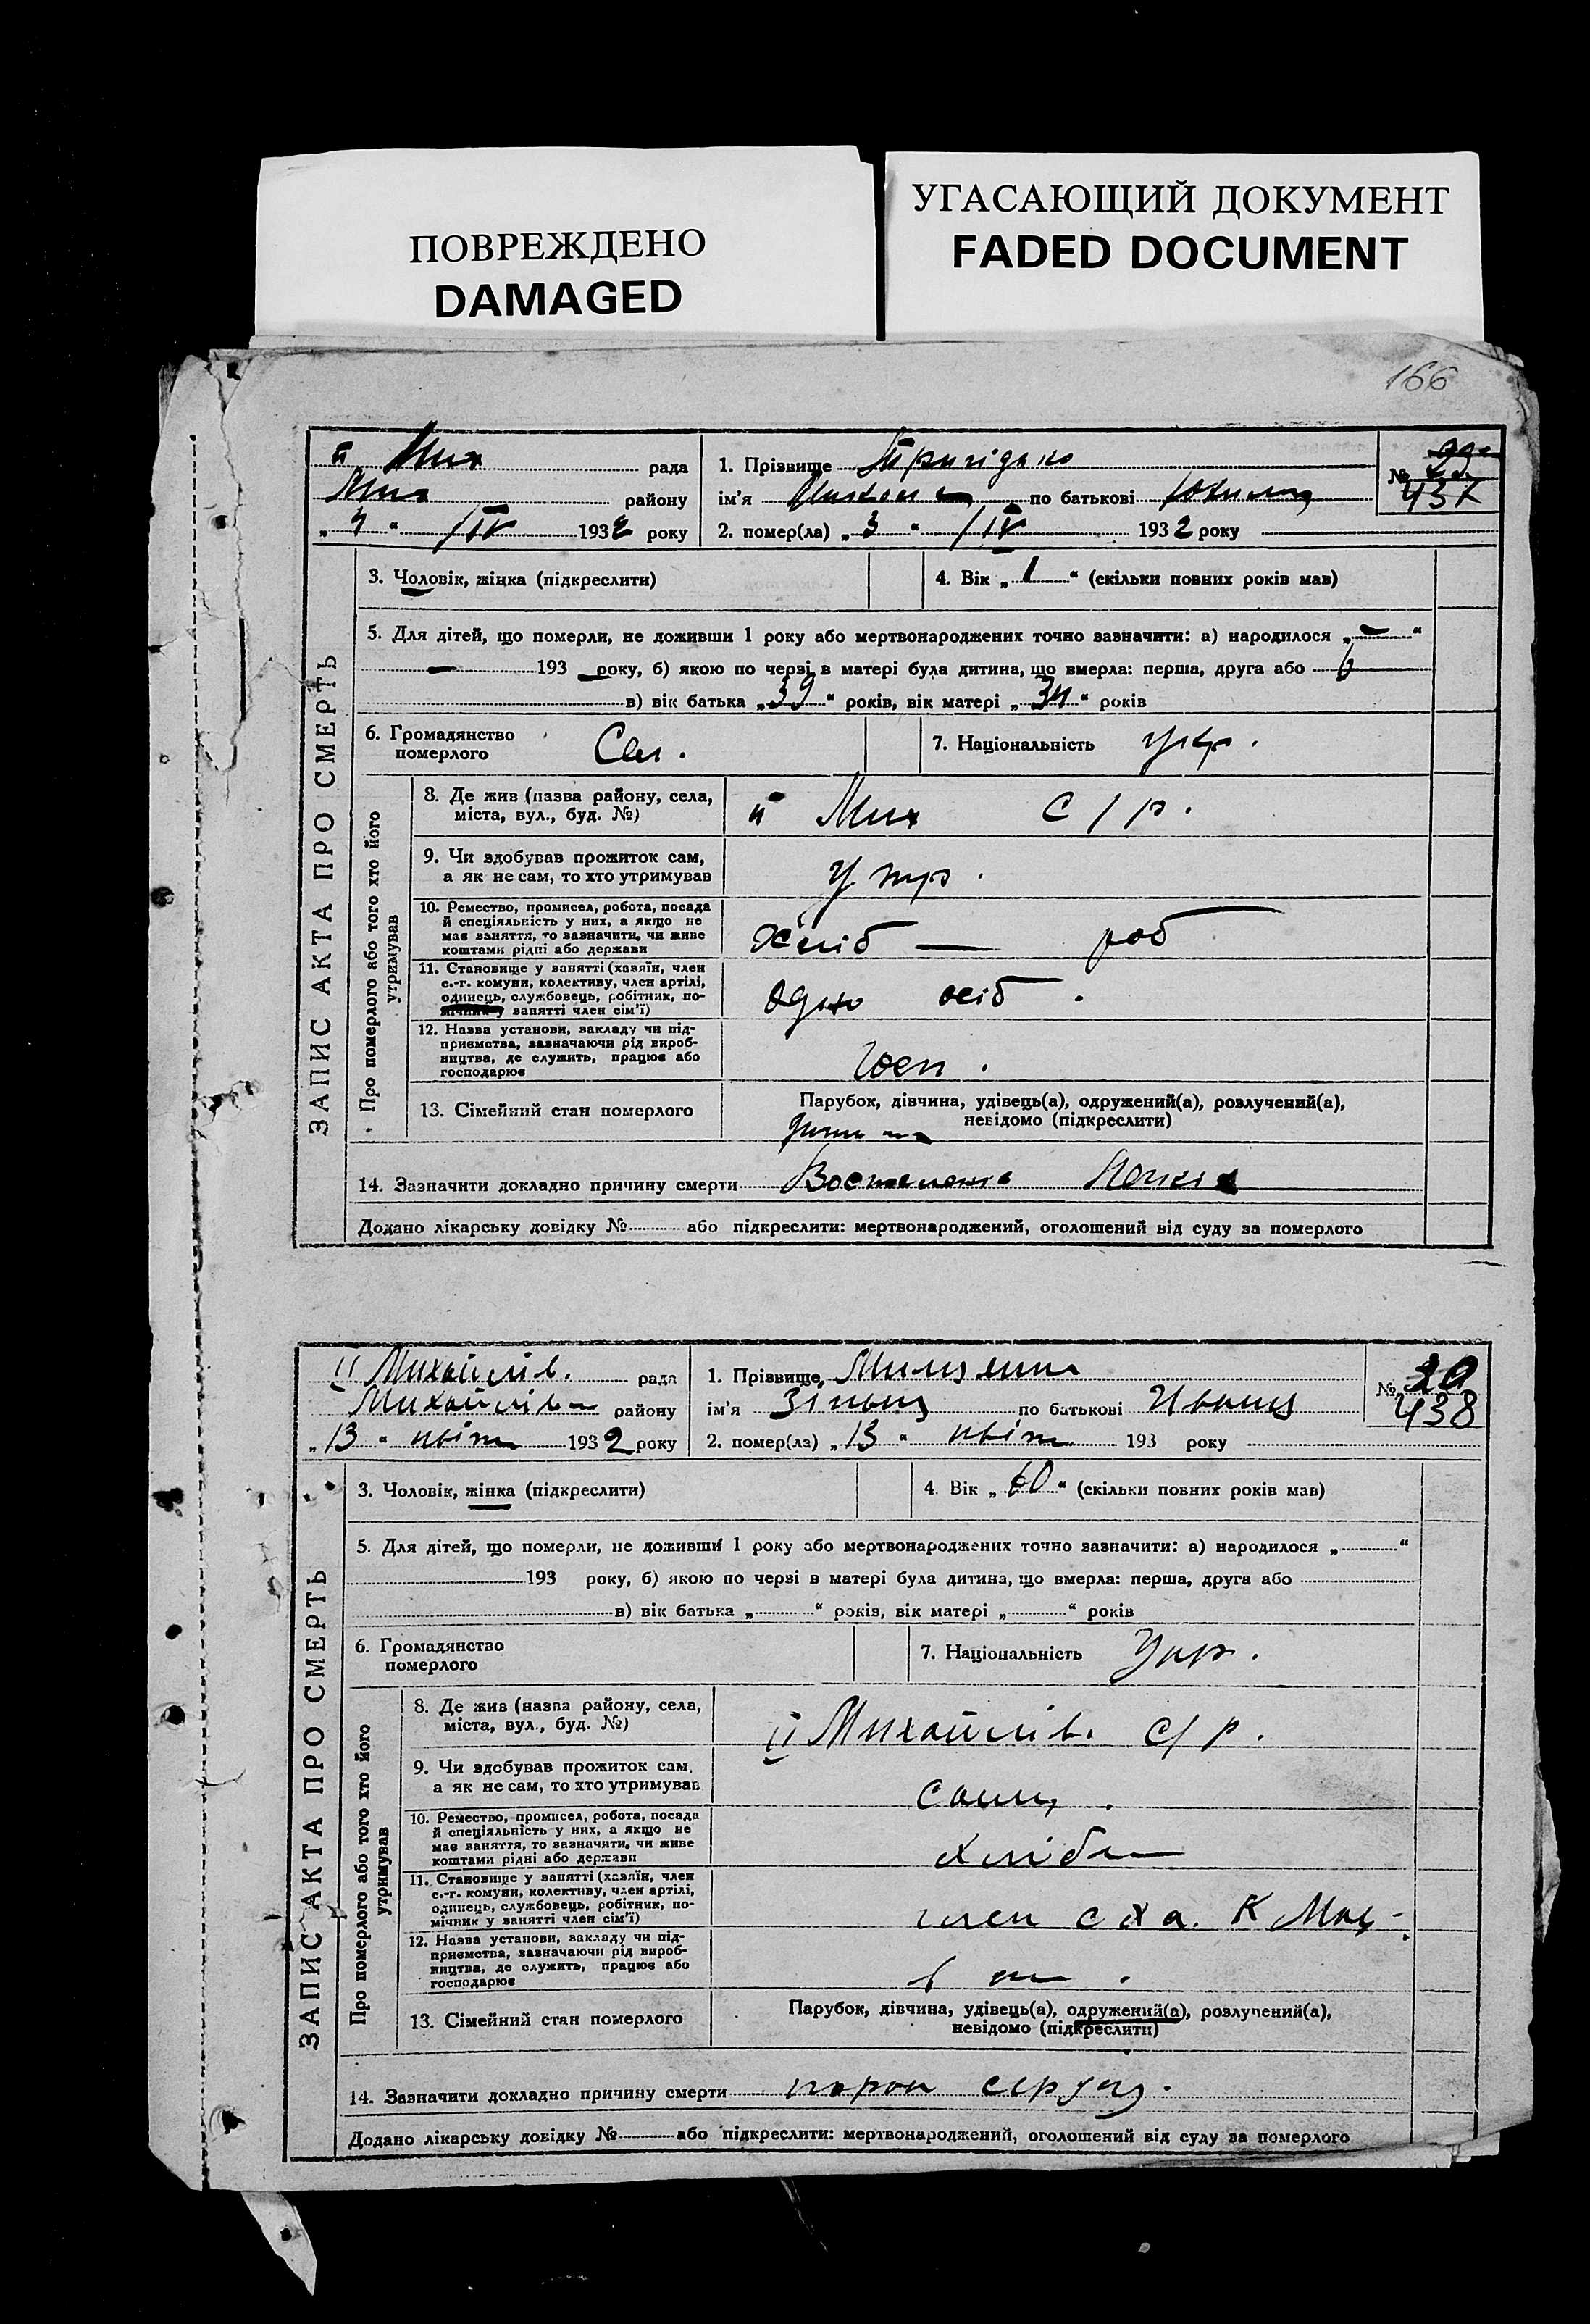 ПОВРЕЖДЕНО
DAMAGED
УГАСАЮЩИЙ ДОКУМЕНТ
FADED DOCUMENT
166
ЗАПИС АКТА ПРО СМЕРТЬ
ІІ Мих рада
Мих району
1932 року
1. Прізвище
ім'я по батькові
2. помер(ла) „3“ /IV 1932 року
№ 437
3. Чоловік, жінка (підкреслити)
4. Вік „1“ (скільки повних років мав)
5. Для дітей, що померли, не доживши 1 року або мертвонароджених точно зазначити: а) народилося „—“
— 193 — року, б) якою по черві в матері була дитина, що вмерла: перша, друга або 6
в) вік батька „39“ років, вік матері „34“ років
6. Громадянство
померлого
7. Національність укр.
Про померлого або того хто його
утримував
8. Де жив (назва району, села,
міста, вул., буд. №)
ІІ Мих с/р.
9. Чи здобував прожиток сам,
а як не сам, то хто утримував
утр.
10. Ремество, промисел, робота, посада
й спеціяльність у них, а якщо не
має заняття, то зазначити, чи живе
коштами рідні або держави
Хліб — роб
11. Становище у занятті (хазяїн, член
с.-г. комуни, колективу, член артілі,
одинець, службовець, робітник, по-
мічник у занятті член сім'ї)
одно осіб.
12. Назва установи, закладу чи під-
приємства, зазначаючи рід вироб-
ництва, де служить, працює або
господарює
13. Сімейний стан померлого
Парубок, дівчина, удівець(а), одружений(а), розлучений(а),
невідомо (підкреслити)
14. Зазначити докладно причину смерти
Додано лікарську довідку № або підкреслити: мертвонароджений, оголошений від суду за померлого
ЗАПИС АКТА ПРО СМЕРТЬ
ІІ Михайлів. рада
Михайлівськ району
„13“ квітн 1932 року
1. Прізвище
ім'я по батькові
2. помер(ла) „13“ квітн 193 року
№ 438
3. Чоловік, жінка (підкреслити)
4. Вік „60“ (скільки повних років мав)
5. Для дітей, що померли, не доживши 1 року або мертвонароджених точно зазначити: а) народилося „ “
193 року, б) якою по черві в матері була дитина, що вмерла: перша, друга або
в) вік батька „ “ років, вік матері „ “ років
6. Громадянство
померлого
7. Національність Укр.
Про померлого або того хто його
утримував
8. Де жив (назва району, села,
міста, вул., буд. №)
ІІ Михайлів. с/р.
9. Чи здобував прожиток сам,
а як не сам, то хто утримував
10. Ремество, промисел, робота, посада
й спеціяльність у них, а якщо не
має заняття, то зазначити, чи живе
коштами рідні або держави
11. Становище у занятті (хазяїн, член
с.-г. комуни, колективу, член артілі,
одинець, службовець, робітник, по-
мічник у занятті член сім'ї)
член
12. Назва установи, закладу чи під-
приємства, зазначаючи рід вироб-
ництва, де служить, працює або
господарює
13. Сімейний стан померлого
Парубок, дівчина, удівець(а), одружений(а), розлучений(а),
невідомо (підкреслити)
14. Зазначити докладно причину смерти порок серця.
Додано лікарську довідку № або підкреслити: мертвонароджений, оголошений від суду за померлого